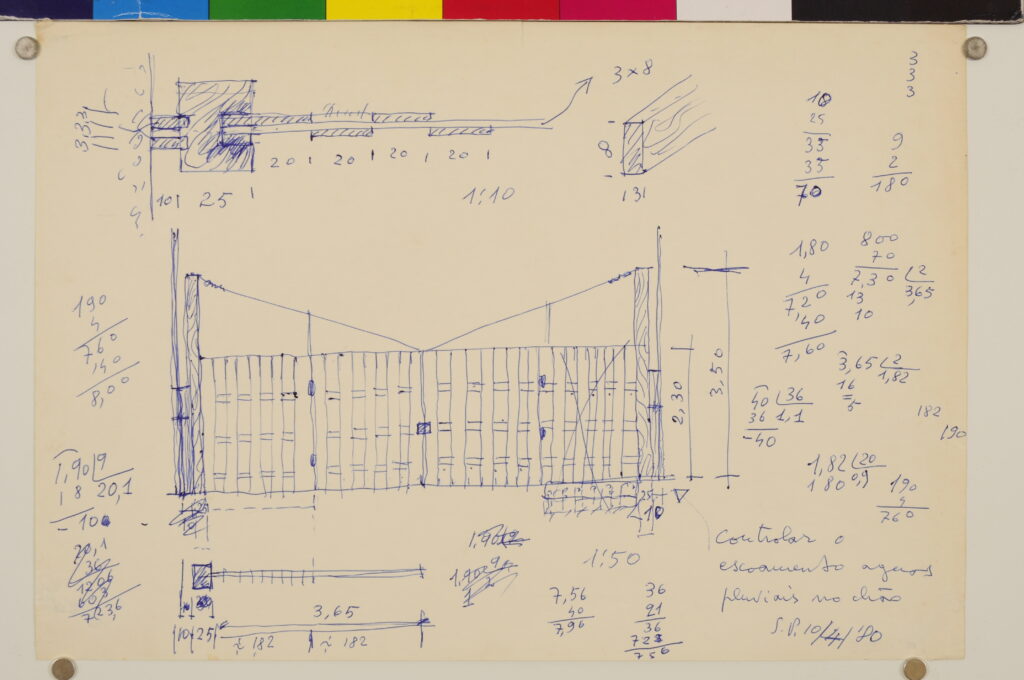 3 × 8
3 3 3
8
20 20 20 20
10 25
1:10
3
3
3
3
10
25
35
35
70
9
2
180
190
4
760
,40
8,00
1,80
4
7,20
,40
7,60
800
70
7,30 2
13 3,65
10
3,65 2
16 1,82
5
3,50
2,30
40 36
36 1,1
-40
182
190
1,82 20
180 0,9
1,90 9
1 8 20,1
- 10
190
4
760
20,1
36
1206
603
723,6
25
10
1:50
Controlar o
escoamento aguas
pluviais no chão
S.P. 10/4/80
3,65
10 25 182 182
7,56
40
7,96
36
21
36
72
756